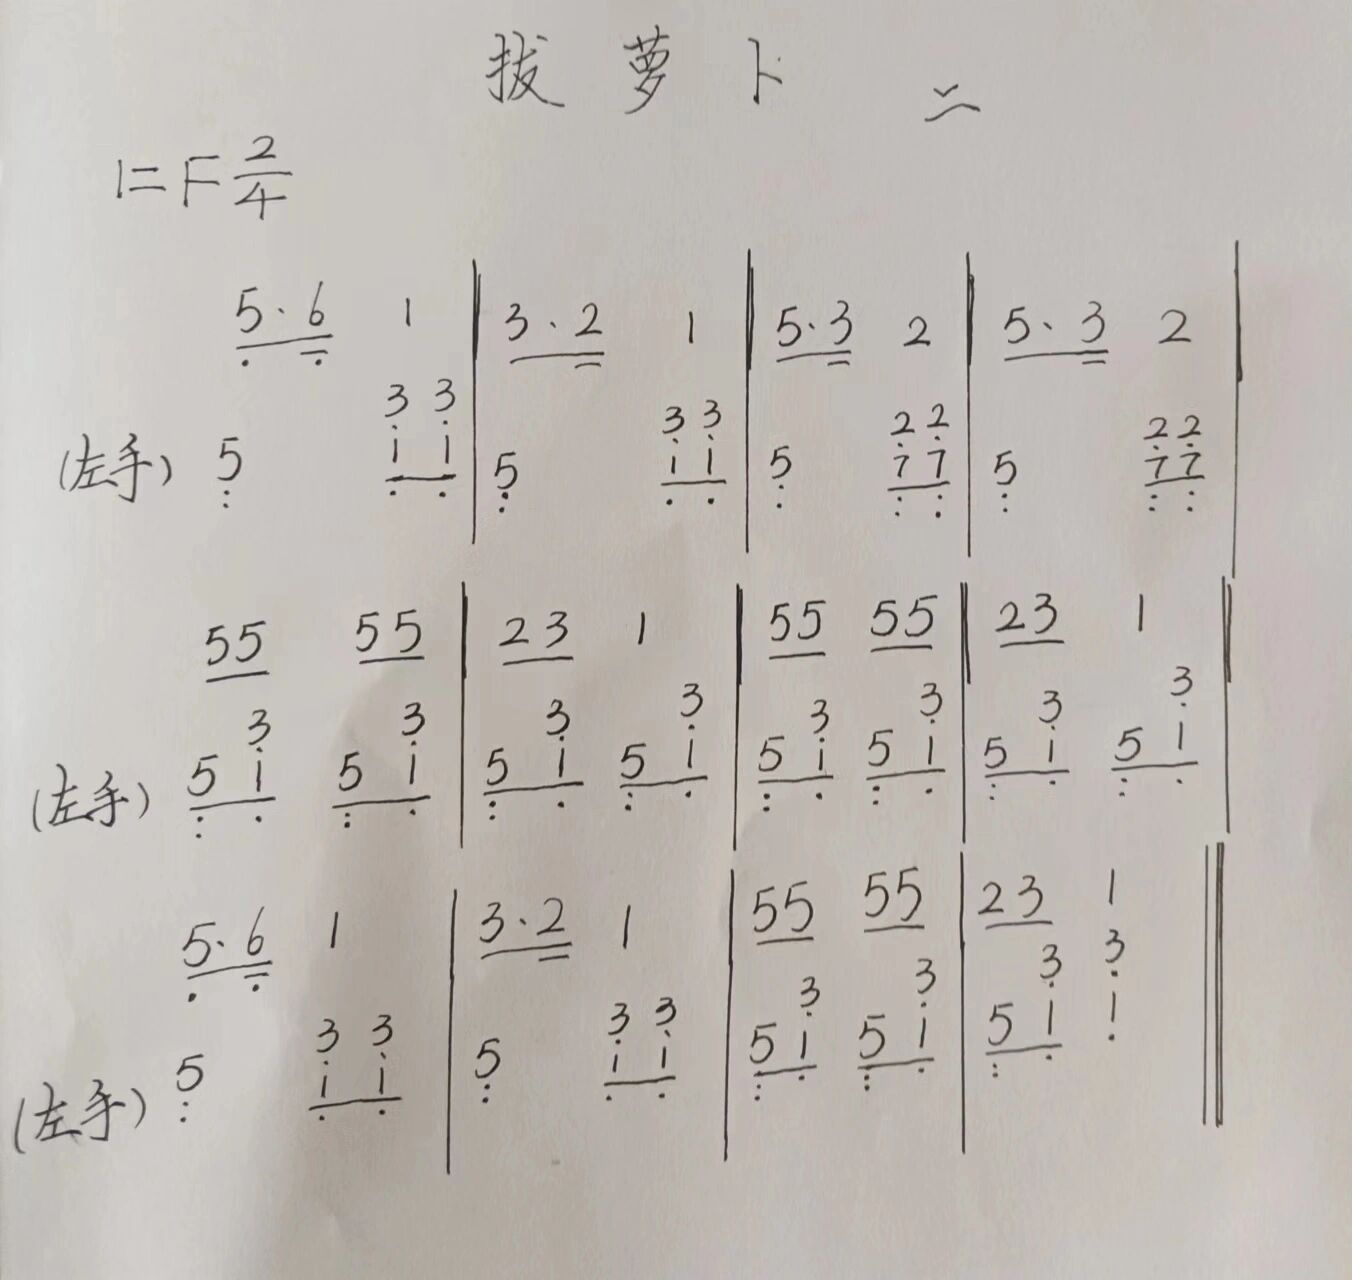 拔萝卜 二
1=F 2/4
5̣·6̣ 1 | 3·2 1 | 5·3 2 | 5·3 2 |
3̣ 3̣ 3̣ 3̣ 2̣ 2̣ 2̣ 2̣
(左手) 5 1 1 | 5 1 1 | 5 7 7 | 5 7 7 |
55 55 | 23 1 | 55 55 | 23 1 |
3̣ 3̣ 3̣ 3̣ 3̣ 3̣ 3̣ 3̣
(左手) 5 1 5 1 | 5 1 5 1 | 5 1 5 1 | 5 1 5 1 |
5̣·6̣ 1 | 3·2 1 | 55 55 | 23 1 ‖
3̣ 3̣ 3̣ 3̣ 3̣ 3̣ 3̣ 3̣
(左手) 5 1 1 | 5 1 1 | 5 1 5 1 | 5 1 1 ‖